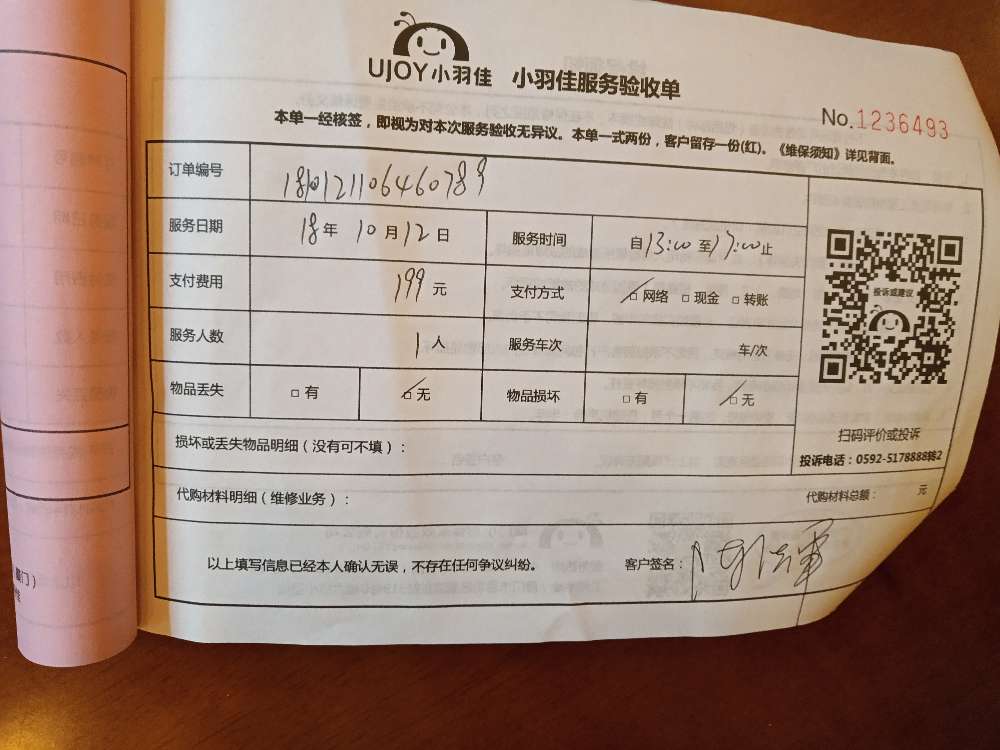 UJOY小羽佳 小羽佳服务验收单
No.1236493
本单一经核签，即视为对本次服务验收无异议。本单一式两份，客户留存一份(红)。《维保须知》详见背面。
订单编号 1810121106460789
服务日期 18年 10月12日 服务时间 自13:00至17:00止
支付费用 199元 支付方式 □网络 □现金 □转账
服务人数 1人 服务车次 车/次
物品丢失 □有 □无 物品损坏 □有 □无
投诉或建议
扫码评价或投诉
投诉电话：0592-5178888转2
损坏或丢失物品明细（没有可不填）：
代购材料明细（维修业务）： 代购材料总额： 元
以上填写信息已经本人确认无误，不存在任何争议纠纷。 客户签名：